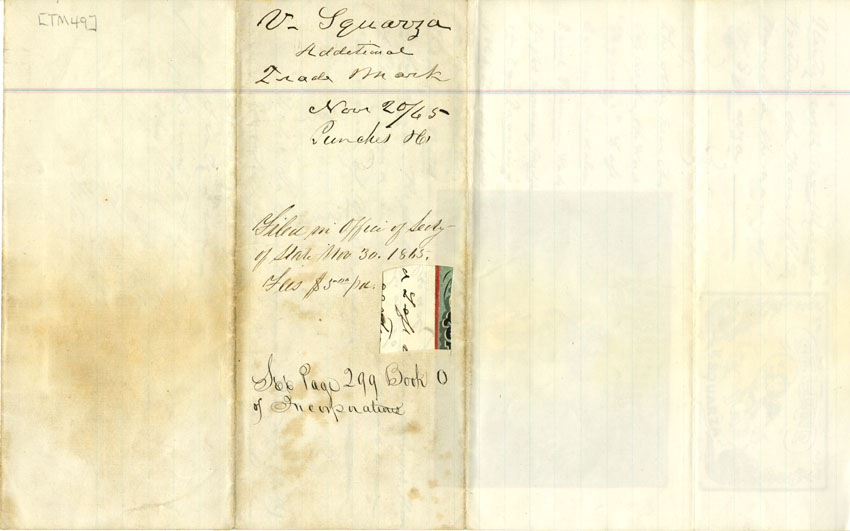 [TM49]
V. Squarza
Additional
Trade Mark
Nov 20/65
Punches &c
Filed in Office of Secty
of State Nov 30. 1865.
Fees $5 pd.
See Page 299 Book O
of Incorporations